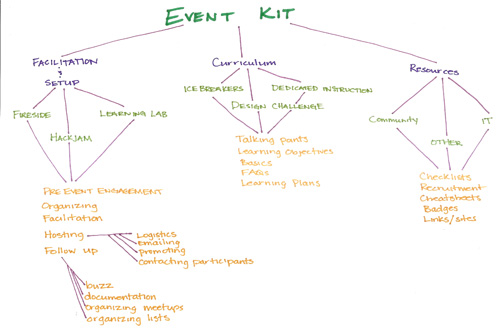 EVENT KIT
FACILITATION
&
SETUP
FIRESIDE
HACKJAM
LEARNING LAB
PRE EVENT ENGAGEMENT
Organizing
Facilitation
Hosting
Logistics
emailing
promoting
contacting participants
Follow up
buzz
documentation
organizing meetups
organizing lists
Curriculum
ICE BREAKERS
DESIGN CHALLENGE
DEDICATED INSTRUCTION
Talking points
Learning Objectives
Basics
FAQs
Learning Plans
Resources
Community
OTHER
IT
Checklists
Recruitment
Cheatsheets
Badges
Links/sites